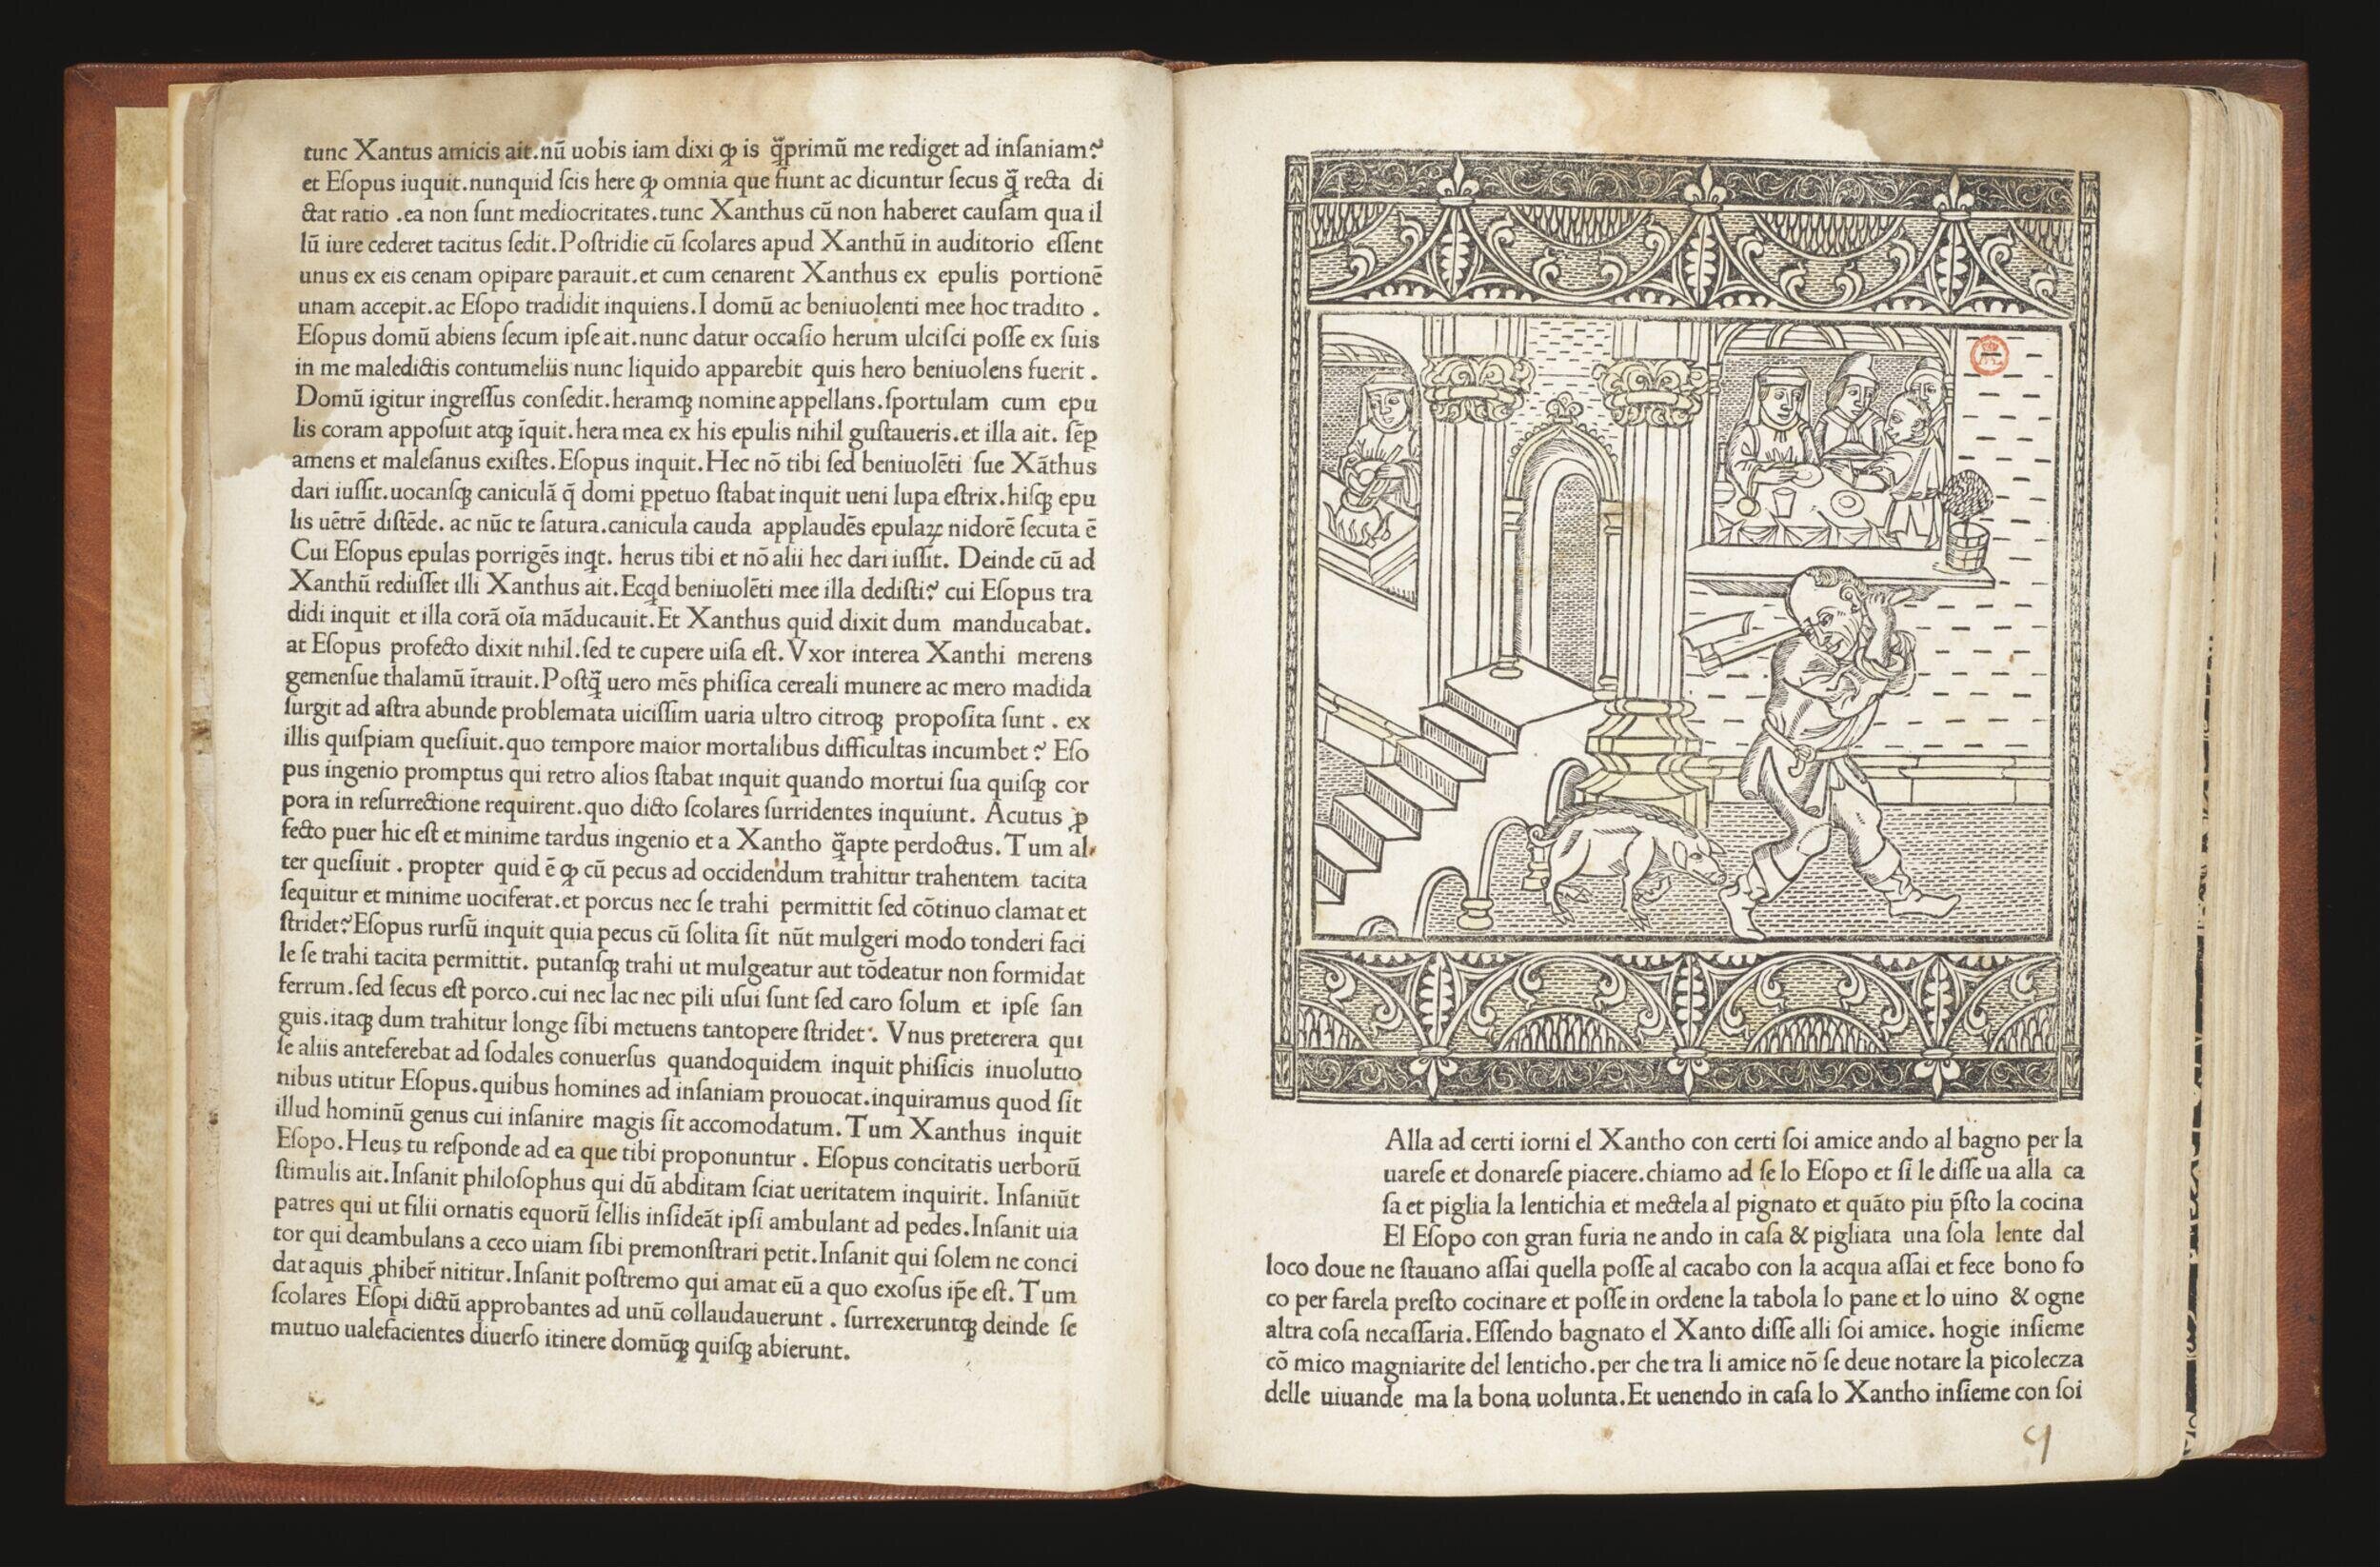 tunc Xantus amicis ait.nũ uobis iam dixi ꝙ is q̃primũ me rediget ad inſaniam?
et Eſopus iuquit.nunquid ſcis here ꝙ omnia que fiunt ac dicuntur ſecus q̃ recta di
ctat ratio .ea non ſunt mediocritates.tunc Xanthus cũ non haberet cauſam qua il
lũ iure cederet tacitus ſedit.Poſtridie cũ ſcolares apud Xanthũ in auditorio eſſent
unus ex eis cenam opipare parauit.et cum cenarent Xanthus ex epulis portionẽ
unam accepit.ac Eſopo tradidit inquiens.I domũ ac beniuolenti mee hoc tradito .
Eſopus domũ abiens ſecum ipſe ait.nunc datur occaſio herum ulciſci poſſe ex ſuis
in me maledictis contumeliis nunc liquido apparebit quis hero beniuolens fuerit .
Domũ igitur ingreſſus conſedit.heramqꝫ nomine appellans.ſportulam cum epu
lis coram appoſuit atqꝫ ĩquit.hera mea ex his epulis nihil guſtaueris.et illa ait. ſẽp
amens et maleſanus exiſtes.Eſopus inquit.Hec nõ tibi ſed beniuolẽti ſue Xãthus
dari iuſſit.uocanſqꝫ caniculã q̃ domi ꝑpetuo ſtabat inquit ueni lupa eſtrix.hiſqꝫ epu
lis uẽtrẽ diſtẽde. ac nũc te ſatura.canicula cauda applaudẽs epulaꝝ nidorẽ ſecuta ẽ
Cui Eſopus epulas porrigẽs inqt. herus tibi et nõ alii hec dari iuſſit. Deinde cũ ad
Xanthũ rediiſſet illi Xanthus ait.Ecqd beniuolẽti mee illa dediſti? cui Eſopus tra
didi inquit et illa corã oĩa mãducauit.Et Xanthus quid dixit dum manducabat.
at Eſopus profecto dixit nihil.ſed te cupere uiſa eſt.Vxor interea Xanthi merens
gemenſue thalamũ ĩtrauit.Poſtq̃ uero mẽs phiſica cereali munere ac mero madida
ſurgit ad aſtra abunde problemata uiciſſim uaria ultro citroqꝫ propoſita ſunt . ex
illis quiſpiam queſiuit.quo tempore maior mortalibus difficultas incumbet? Eſo
pus ingenio promptus qui retro alios ſtabat inquit quando mortui ſua quiſqꝫ cor
pora in reſurrectione requirent.quo dicto ſcolares ſurridentes inquiunt. Acutus ꝓ
fecto puer hic eſt et minime tardus ingenio et a Xantho q̃apte perdoctus.Tum al
ter queſiuit . propter quid ẽ ꝙ cũ pecus ad occidendum trahitur trahentem tacita
ſequitur et minime uociferat.et porcus nec ſe trahi permittit ſed cõtinuo clamat et
ſtridet?Eſopus rurſũ inquit quia pecus cũ ſolita ſit nũt mulgeri modo tonderi faci
le ſe trahi tacita permittit. putanſqꝫ trahi ut mulgeatur aut tõdeatur non formidat
ferrum.ſed ſecus eſt porco.cui nec lac nec pili uſui ſunt ſed caro ſolum et ipſe ſan
guis.itaqꝫ dum trahitur longe ſibi metuens tantopere ſtridet. Vnus preterera qui
ſe aliis anteferebat ad ſodales conuerſus quandoquidem inquit phiſicis inuolutio
nibus utitur Eſopus.quibus homines ad inſaniam prouocat.inquiramus quod ſit
illud hominũ genus cui inſanire magis ſit accomodatum.Tum Xanthus inquit
Eſopo.Heus tu reſponde ad ea que tibi proponuntur . Eſopus concitatis uerborũ
ſtimulis ait.Inſanit philoſophus qui dũ abditam ſciat ueritatem inquirit. Inſaniũt
patres qui ut filii ornatis equorũ ſellis inſideãt ipſi ambulant ad pedes.Inſanit uia
tor qui deambulans a ceco uiam ſibi premonſtrari petit.Inſanit qui ſolem ne conci
dat aquis ꝓhiber̃ nititur.Inſanit poſtremo qui amat eũ a quo exoſus ip̃e eſt.Tum
ſcolares Eſopi dictũ approbantes ad unũ collaudauerunt . ſurrexeruntqꝫ deinde ſe
mutuo ualefacientes diuerſo itinere domũqꝫ quiſqꝫ abierunt.
Alla ad certi iorni el Xantho con certi ſoi amice ando al bagno per la
uareſe et donareſe piacere.chiamo ad ſe lo Eſopo et ſi le diſſe ua alla ca
ſa et piglia la lentichia et mectela al pignato et quãto piu p̃ſto la cocina
El Eſopo con gran furia ne ando in caſa & pigliata una ſola lente dal
loco doue ne ſtauano aſſai quella poſſe al cacabo con la acqua aſſai et fece bono fo
co per farela preſto cocinare et poſſe in ordene la tabola lo pane et lo uino & ogne
altra coſa necaſſaria.Eſſendo bagnato el Xanto diſſe alli ſoi amice. hogie inſieme
cõ mico magniarite del lenticho.per che tra li amice nõ ſe deue notare la picolecza
delle uiuande ma la bona uolunta.Et uenendo in caſa lo Xantho inſieme con ſoi